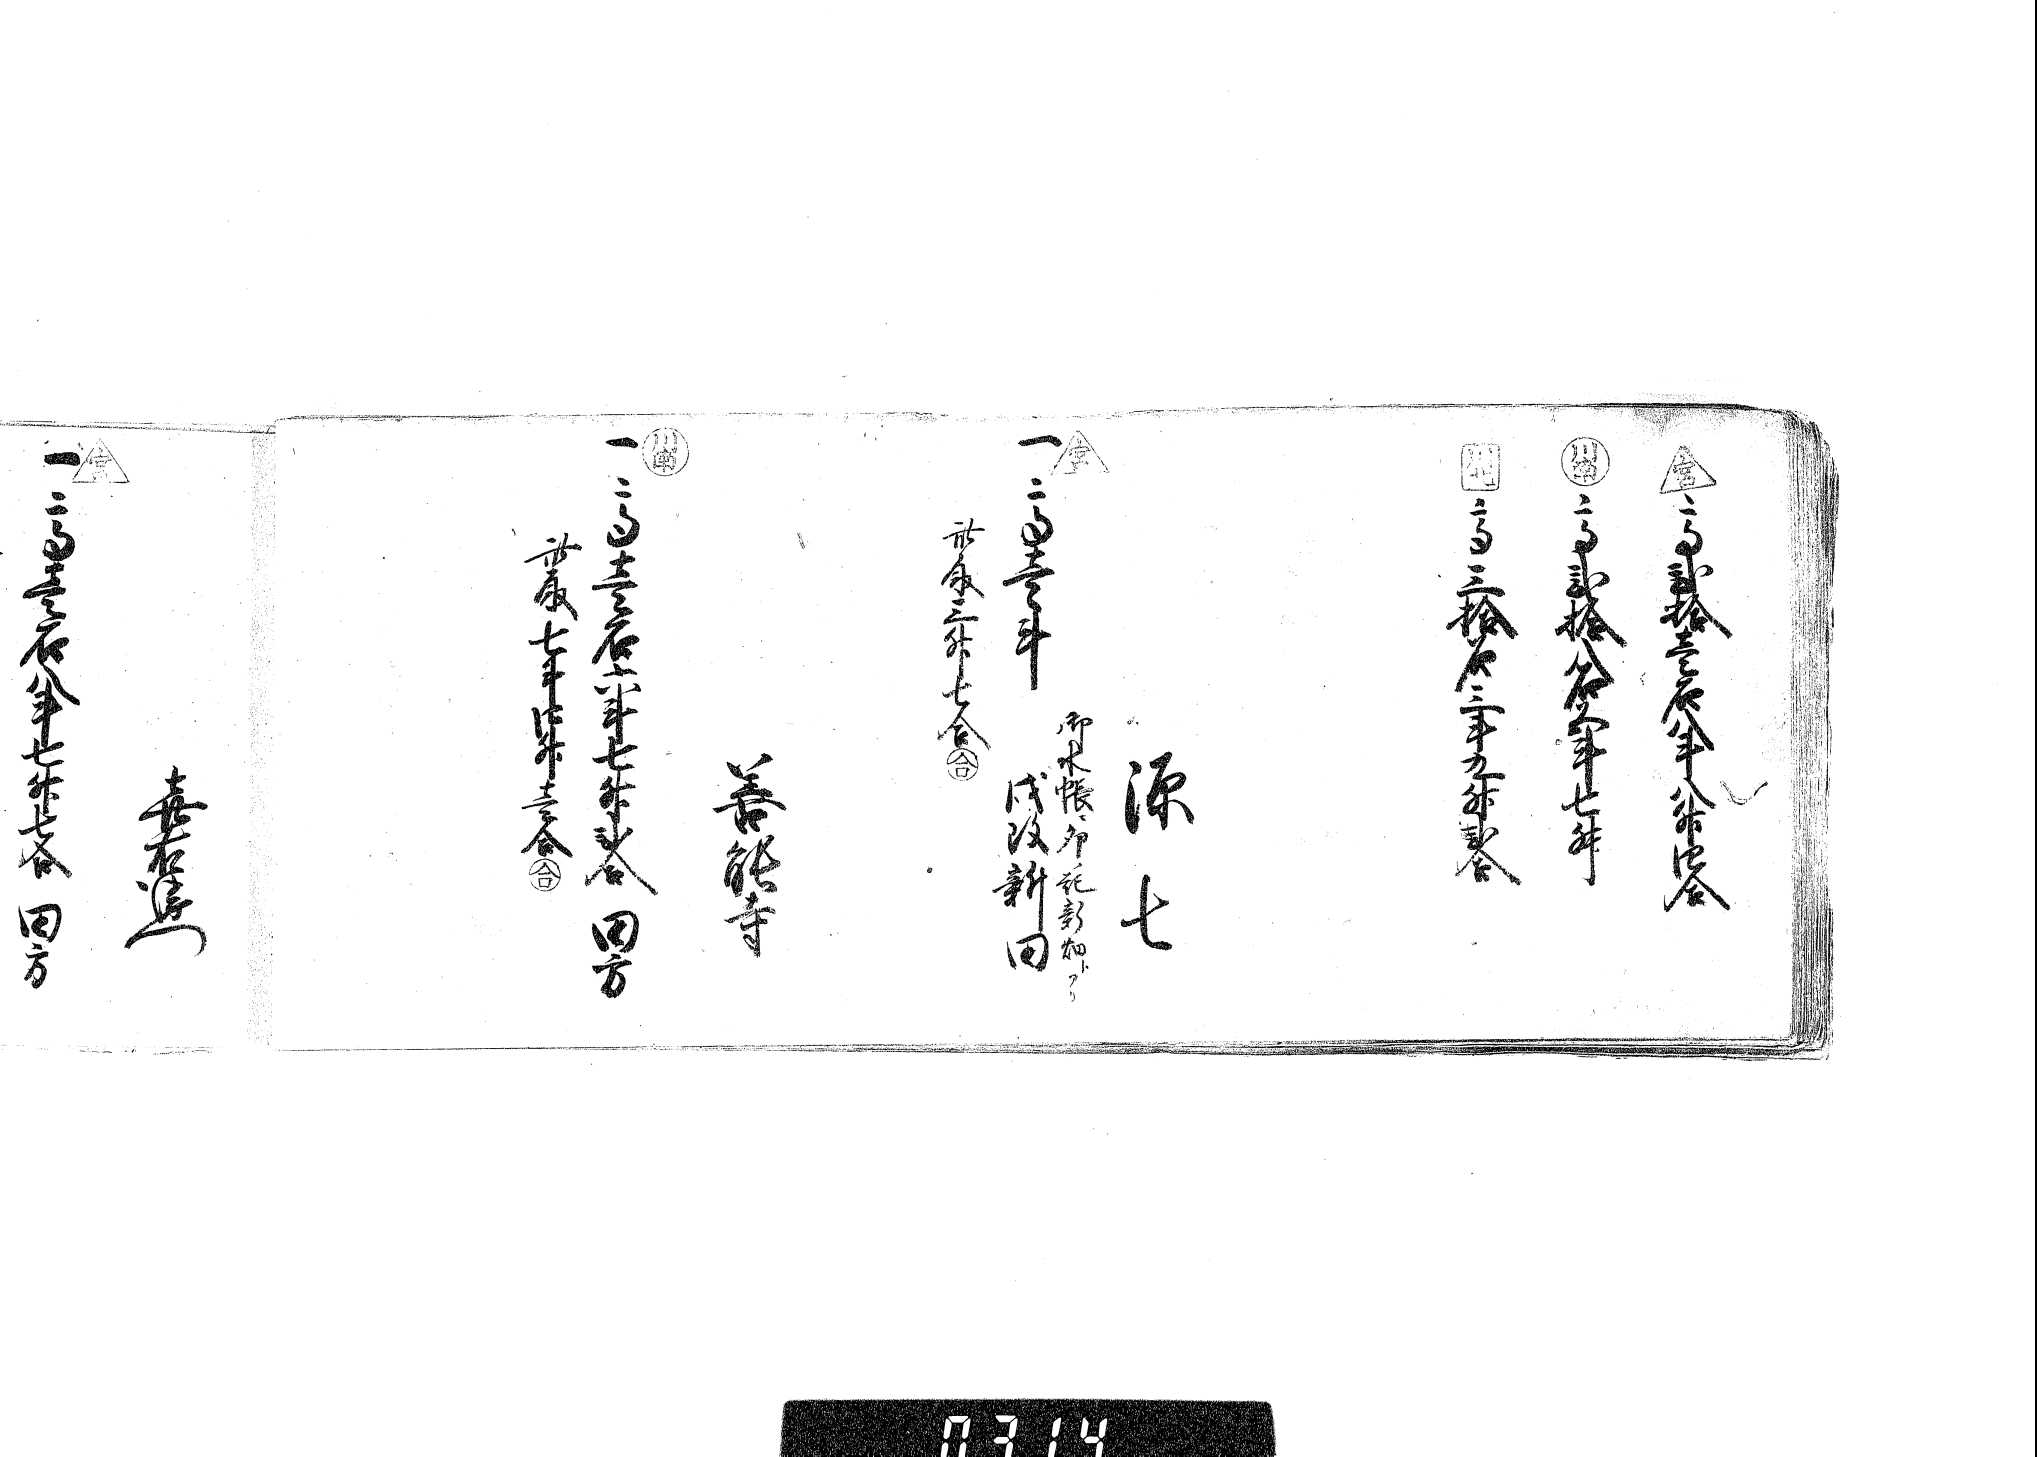 宮 二高弐拾壱石八斗八升四合
川南 二高弐拾八石四斗七升
川北 二高三拾石三斗九升弐合
源七
御水帳ニ印ノ記新畑トアリ
宮 一二高壱斗 戌改新田
此取三升七合 合
善能寺
川南 一二高壱石六斗七升弐合 田方
此取七斗四升壱合 合
嘉右衛門
宮 一二高壱石八斗七升七合 田方
0314